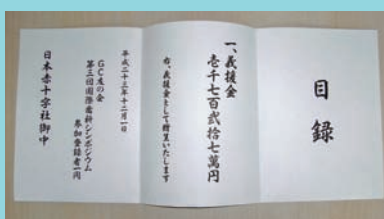 目録
一、義援金
壱千七百弐拾七萬円
右、義援金として贈呈いたします
平成二十三年十二月一日
GC友の会
第三回国際歯科シンポジウム
参加登録者一同
日本赤十字社御中